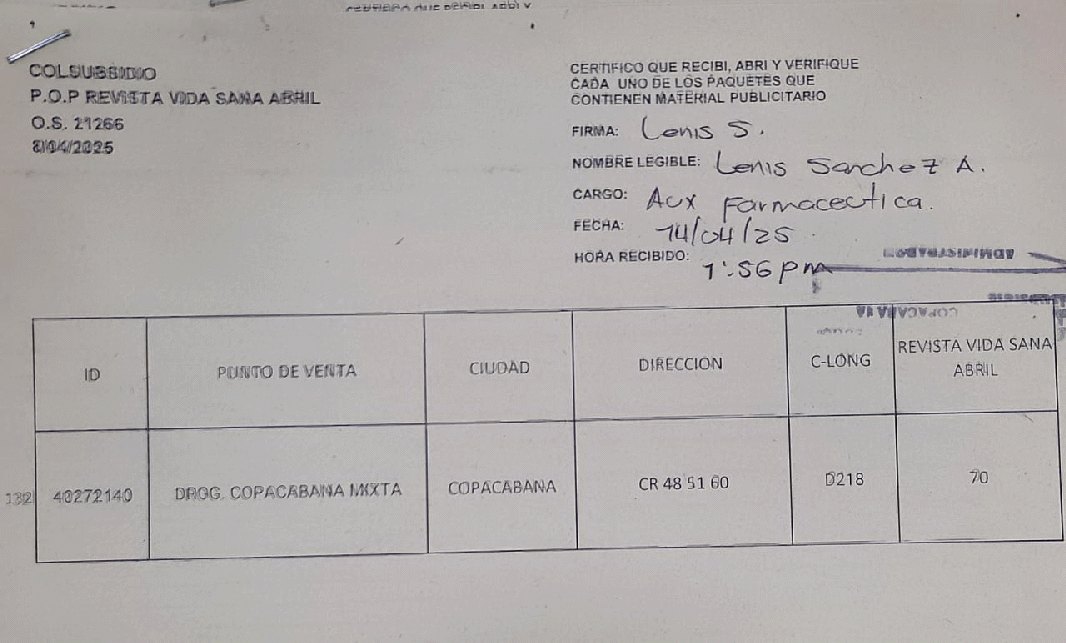 COLSUBSIDIO
P.O.P REVISTA VIDA SANA ABRIL
O.S. 21266
8/04/2025
CERTIFICO QUE RECIBI, ABRI Y VERIFIQUE
CADA UNO DE LOS PAQUETES QUE
CONTIENEN MATERIAL PUBLICITARIO
FIRMA: Lenis S.
NOMBRE LEGIBLE: Lenis Sanchez A.
CARGO: Aux Farmaceutica.
FECHA: 14/04/25
HORA RECIBIDO: 1:56 pm
ID PUNTO DE VENTA CIUDAD DIRECCION C-LONG REVISTA VIDA SANA ABRIL
132 40272140 DROG. COPACABANA MIXTA COPACABANA CR 48 51 60 D218 70